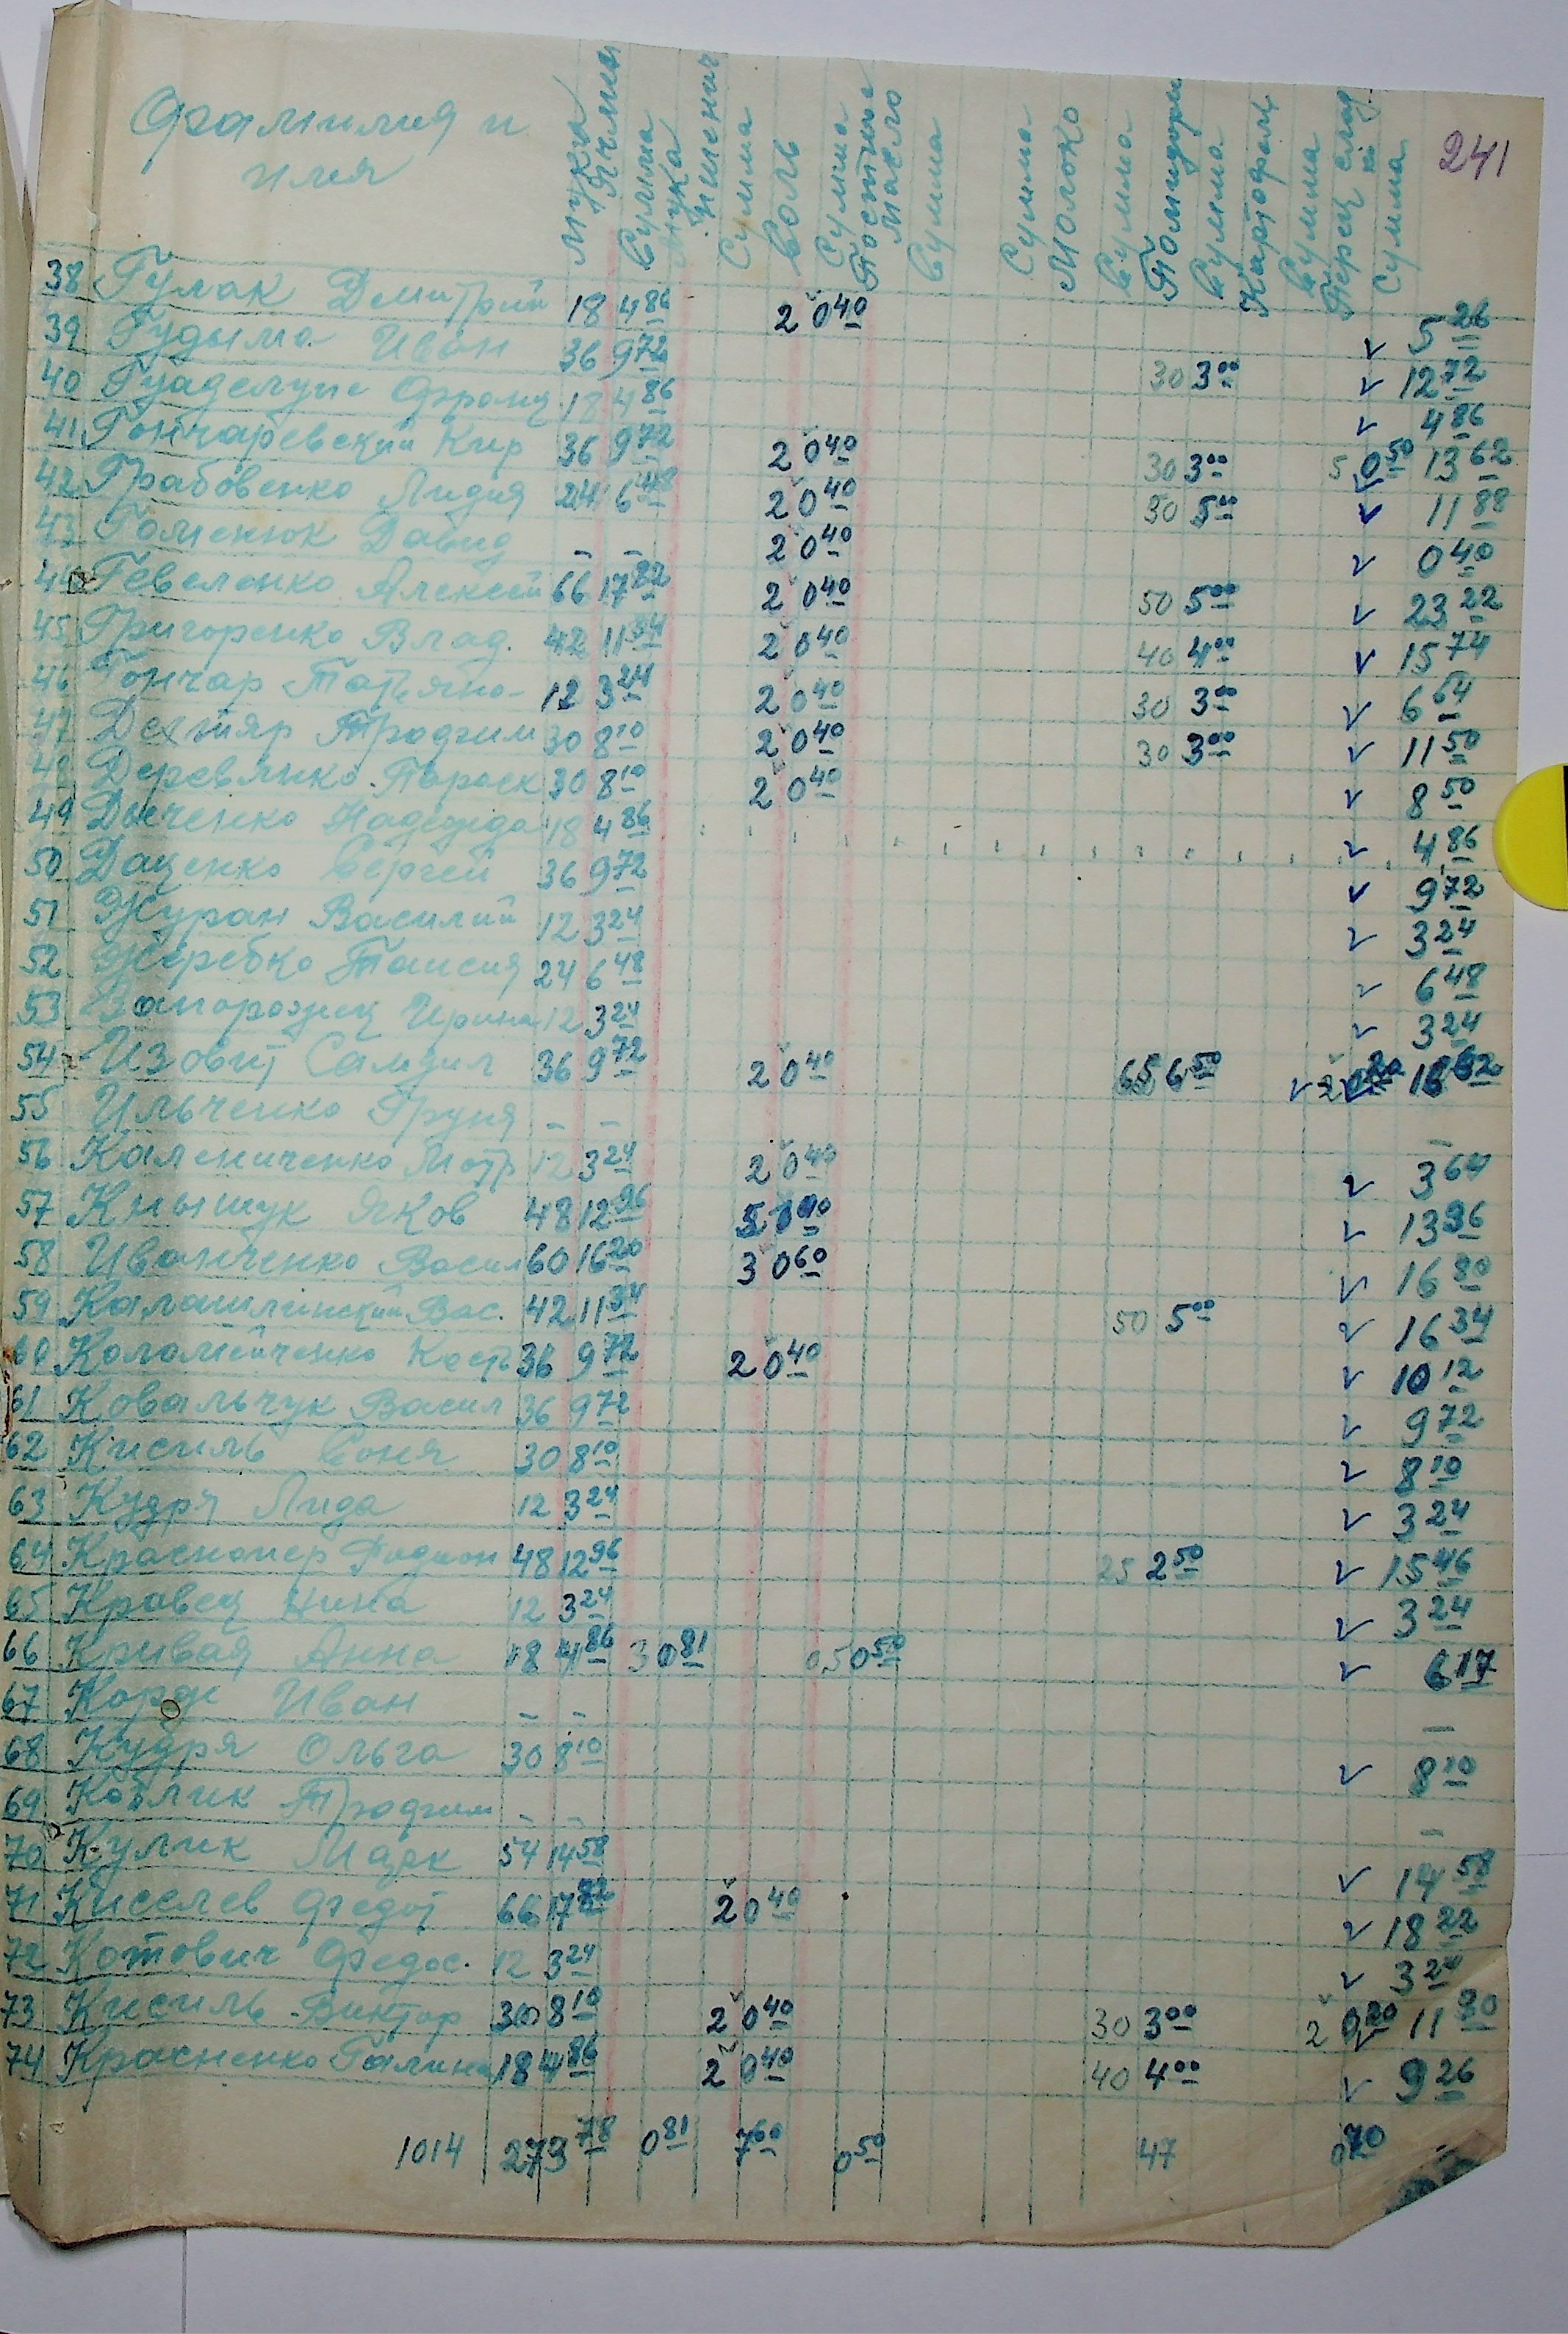 241
Фамилия и имя
Мука Ячмен Сумма Мука Пшенич Сумма Соль Сумма Постное Масло Сумма Сумма Молоко Сумма Помидоры Сумма Картофель Сумма Перец слад. Сумма
38 Гулак Дмитрий 18 4 86 2 0 40 5 26
39 Гудыма Иван 36 9 72 30 3 00 12 72
40 Франц 18 4 86 4 86
41 Гончаревский Кир 36 9 72 2 0 40 30 3 00 5 0 50 13 62
42 Грабовенко Лидия 24 6 48 2 0 40 50 5 00 11 88
43 Гоменюк Давид – – 2 0 40 0 40
44 Гевеленко Алексей 66 17 82 2 0 40 50 5 00 23 22
45 Григоренко Влад. 42 11 34 2 0 40 40 4 00 15 74
46 Гончар Татьяна 12 3 24 2 0 40 30 3 00 6 64
47 Дехтяр Трофим 30 8 10 2 0 40 30 3 00 11 50
48 Деревянко Параск 30 8 10 2 0 40 8 50
49 Дьяченко Надежда 18 4 86 4 86
50 Даценко Сергей 36 9 72 9 72
51 Журан Василий 12 3 24 3 24
52 Жеребко Таисия 24 6 48 6 48
53 Запорожец Ирина 12 3 24 3 24
54 Изовит Самуил 36 9 72 2 0 40 65 6 50 2 0 20 16 62
55 Ильченко Груня – – –
56 Калениченко Мотр 12 3 24 2 0 40 3 64
57 Кнышук Яков 48 12 96 5 1 00 13 96
58 Иванченко Васил 60 16 20 3 0 60 16 80
59 Вас. 42 11 34 50 5 00 16 34
60 Коломийченко Кость 36 9 72 2 0 40 10 12
61 Ковальчук Васил 36 9 72 9 72
62 Кисиль Соня 30 8 10 8 10
63 Кудря Лида 12 3 24 3 24
64 Краснопер Родион 48 12 96 25 2 50 15 46
65 Кравец Нина 12 3 24 3 24
66 Кривая Анна 18 4 86 3 0 81 0,5 0 50 6 17
67 Иван – – –
68 Кудря Ольга 30 8 10 8 10
69 Трофим – – –
70 Кулик Марк 54 14 58 14 58
71 Киселев Федот 66 17 82 2 0 40 18 22
72 Котович Федос. 12 3 24 3 24
73 Кисиль Виктор 30 8 10 2 0 40 30 3 00 2 0 20 11 90
74 Красненко Галина 18 4 86 2 0 40 40 4 00 9 26
1014 273 78 0 81 7 60 0 50 47 0 70